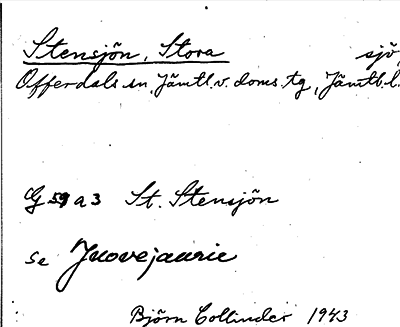 Stensjön, Stora sjö,
Offerdals sn, Jämtl. v. doms. tg, Jämtl. l.
G 59 a 3 St. Stensjön
se Juovejaurie
Björn Collinder 1943